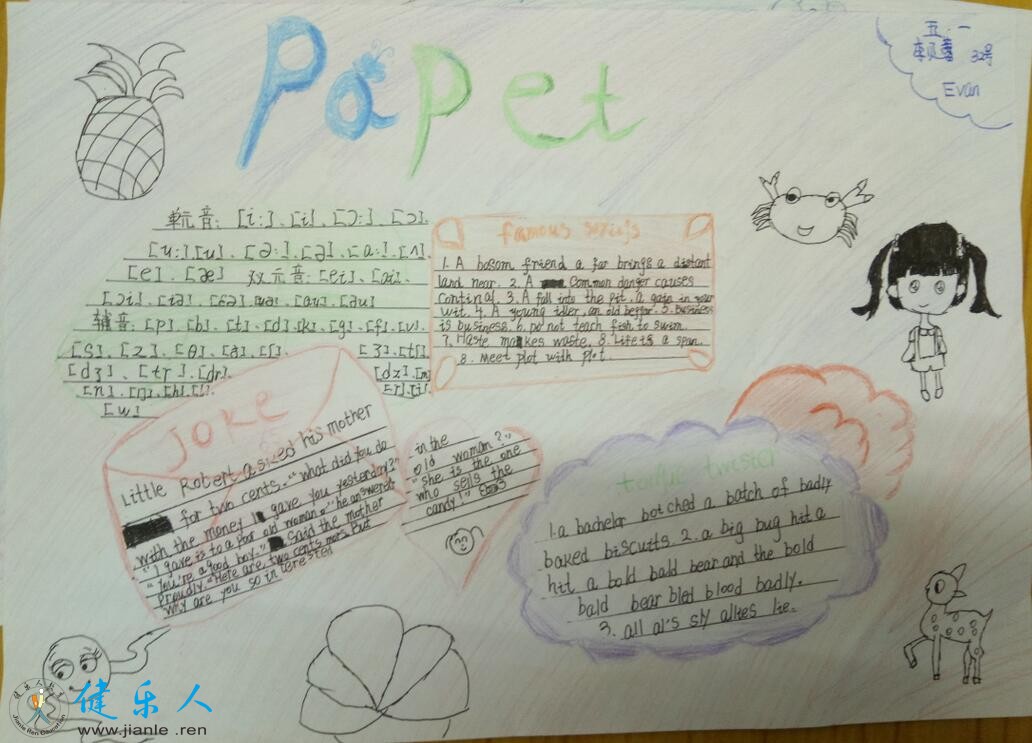 Papet
五.一
32号
Evan
单元音: [i:]、[i]、[ɔ:]、[ɔ]、
[u:] [u]、[ə:]、[ə]、[ɑ:]、[ʌ]
[e]、[æ] 双元音: [ei]、[ai]、
[ɔi]、[iə]、[ɛə]、[uə]、[au]、[əu]
辅音: [p]、[b]、[t]、[d]、[k]、[g]、[f]、[v]、
[s]、[z]、[θ]、[ð]、[ʃ]、 [ʒ]、[tʃ]、
[dʒ]、[tr]、[dr]、 [dz]、[m]
[n]、[ŋ]、[h]、[l]、 [r]、[j]、
[w]
famous
1. A bosom friend a far brings a distant
land near. 2. A Common danger causes
continal. 3. A fall into the pit, a gain in your
wit. 4. A young idler, an old beggar. 5. Business
is business. 6. Do not teach fish to swim.
7. Haste makes waste. 8. Life is a span.
8. Meet plot with plot
Joke
Little Robert asked his mother
for two cents. "What did you do
with the money I gave you yesterday?"
"I gave is to a poor old woman," he answered
"You're a good boy," said the mother
Proudly. "Here are two cents more. But
why are you so interested
in the
old woman?"
"she is the one
who sells the
candy!"
tongue twister
1. a bachelor botched a batch of badly
baked biscuits. 2. a big bug hit a
hit a bold bald bear and the bold
bald bear bled blood badly.
3. all al's sly allies lie.
健乐人
www.jianle .ren